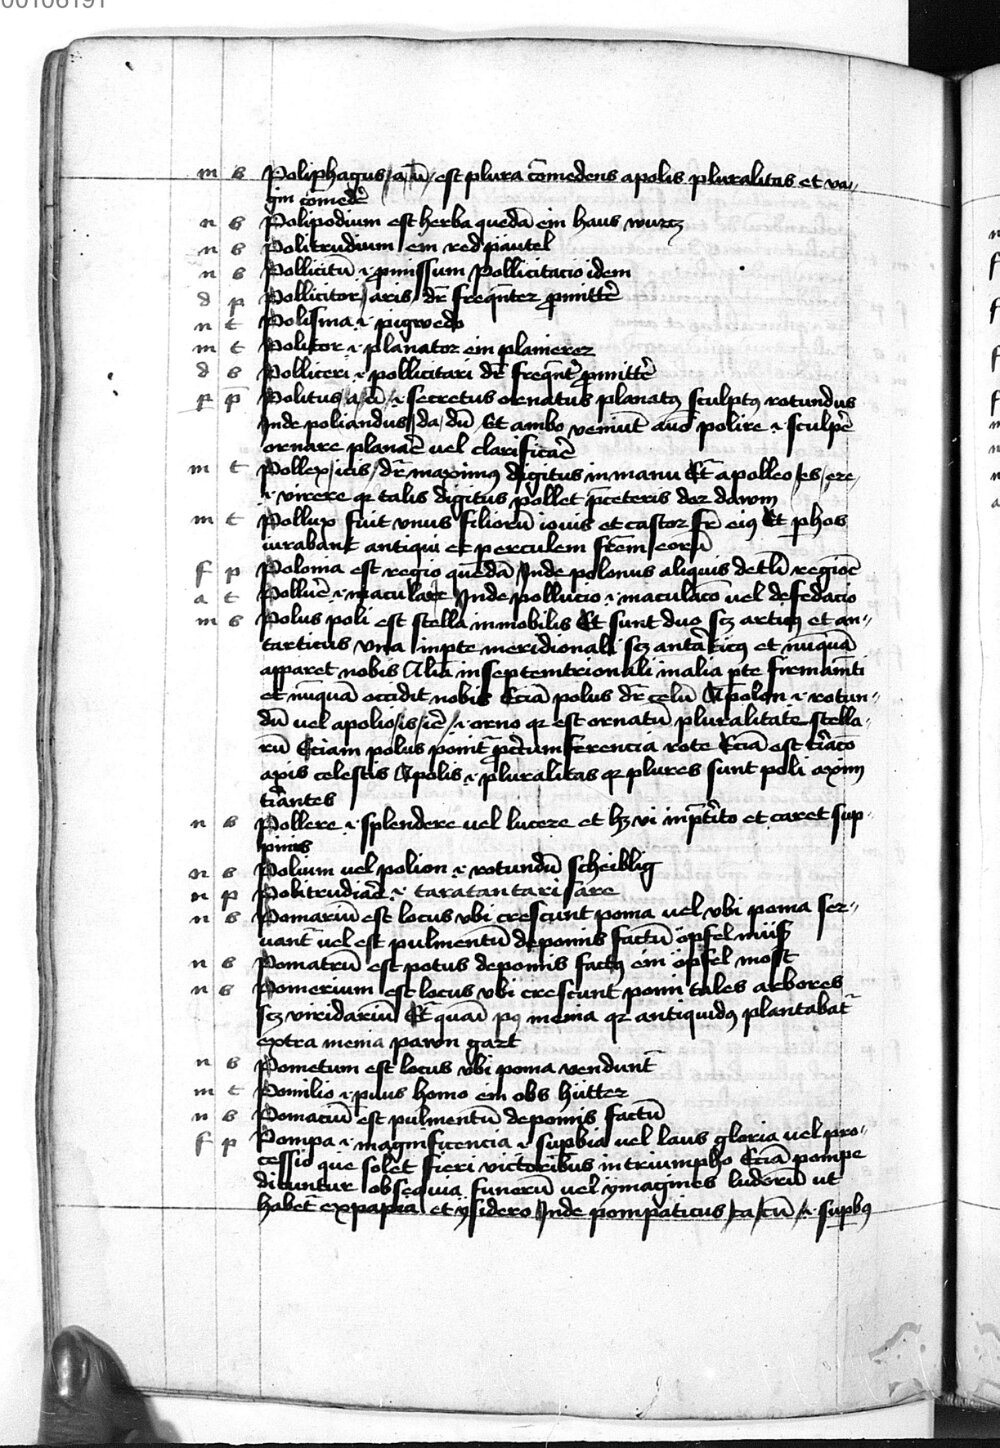 00106191
m s Poliphagus /a /ū/ est plura comedens a polis pluralitas et va-
gin comedē
n s Polipodium est herba quedā ein haus wurcz
n s Politrudium ein red piautel
n s Pollicitū .i. ꝓmissum Pollicitacio idem
d p Pollicitor /aris/ dr̄ frequēter ꝓmittē
n t Polisma .i. pigredo
m t Politor .i. planator ein planierer
d s Polliceri .i. pollicitari dr̄ freqnt̄ ꝓmittē
p̄ p̄ Politus /a /ū/ .i. secretus ornatus planatꝰ sculptꝰ rotundus
Inde poliandus /da /dū/ Et ambo veniūt a uō polire .i. sculpē
ornare planarē vel clarificarē
m t Pollex /icis/ dr̄ maximꝰ digitus in manu Et̄ a polleo /es /ere/
.i. virere qr talis digitus pollet p̄ ceteris der dawm
m t Pollux fuit vnus filiorū iouis et castor fr̄ eiꝰ Et per hos
iurabant antiqui et per culem frēm eorū
f p Polonia est regio quedā Inde polonus aliquis de tl̄i regiōe
a t Polluē .i. maculare Inde pollucio .i. maculacō vel defedacio
m s Polus poli est stella inmobilis Et sunt duo scz articꝰ et an-
tarticus vna in pte meridionali scz antārticꝰ et nūquā
apparet nobis Alia in septemtrionali in alia pte firmamēti
et nūquā occidit nobis Eciā polus dr̄ celū A polon .i. rotun-
dū vel a polio /is /ire/ .i. orno qr est ornatū pluralitate stella-
rū Eciam polus ponit̄ ꝓ circumferencia rote Eciā est tʳacō
axis celestis A polis .i. pluralitas qr plures sunt poli axim
tʳantes
n s Pollere .i. splendere vel lucere et hz vi in p̄tʳito et caret sup-
pinis
n s Polium vel polion .i. rotundū scheiblig
n p Politrudiarē .i. taratantarisare
n s Pomariū est locus vbi crescunt poma vel vbi poma ser-
uant̄ vel est pulmentū de pomis factū öpfel mūß
n s Pomatrū est potus de pomis factꝰ ein öpfel most
n s Pomerium est locus vbi crescunt pomi tales arbores
scz viridariū Et̄ quasi pꝰ menia qr antiquitꝰ plantabat̄
extra menia pawn gart
n s Pometum est locus vbi poma vendunt̄
m t Pomilio .i. pūus homo ein obs hütter
n s Pomaciū est pulmentū de pomis factū
f p Pompa .i. magnificencia .i. supbia vel laus gloria vel pro-
cessio que solet fieri victoribus in triumpho Eciā pompe
dicuntur obsequia funerū vel ymagines ludorū ut
habet̄ ex papia et ysidero Inde pompaticus /ca /cū/ .i. supbꝰ